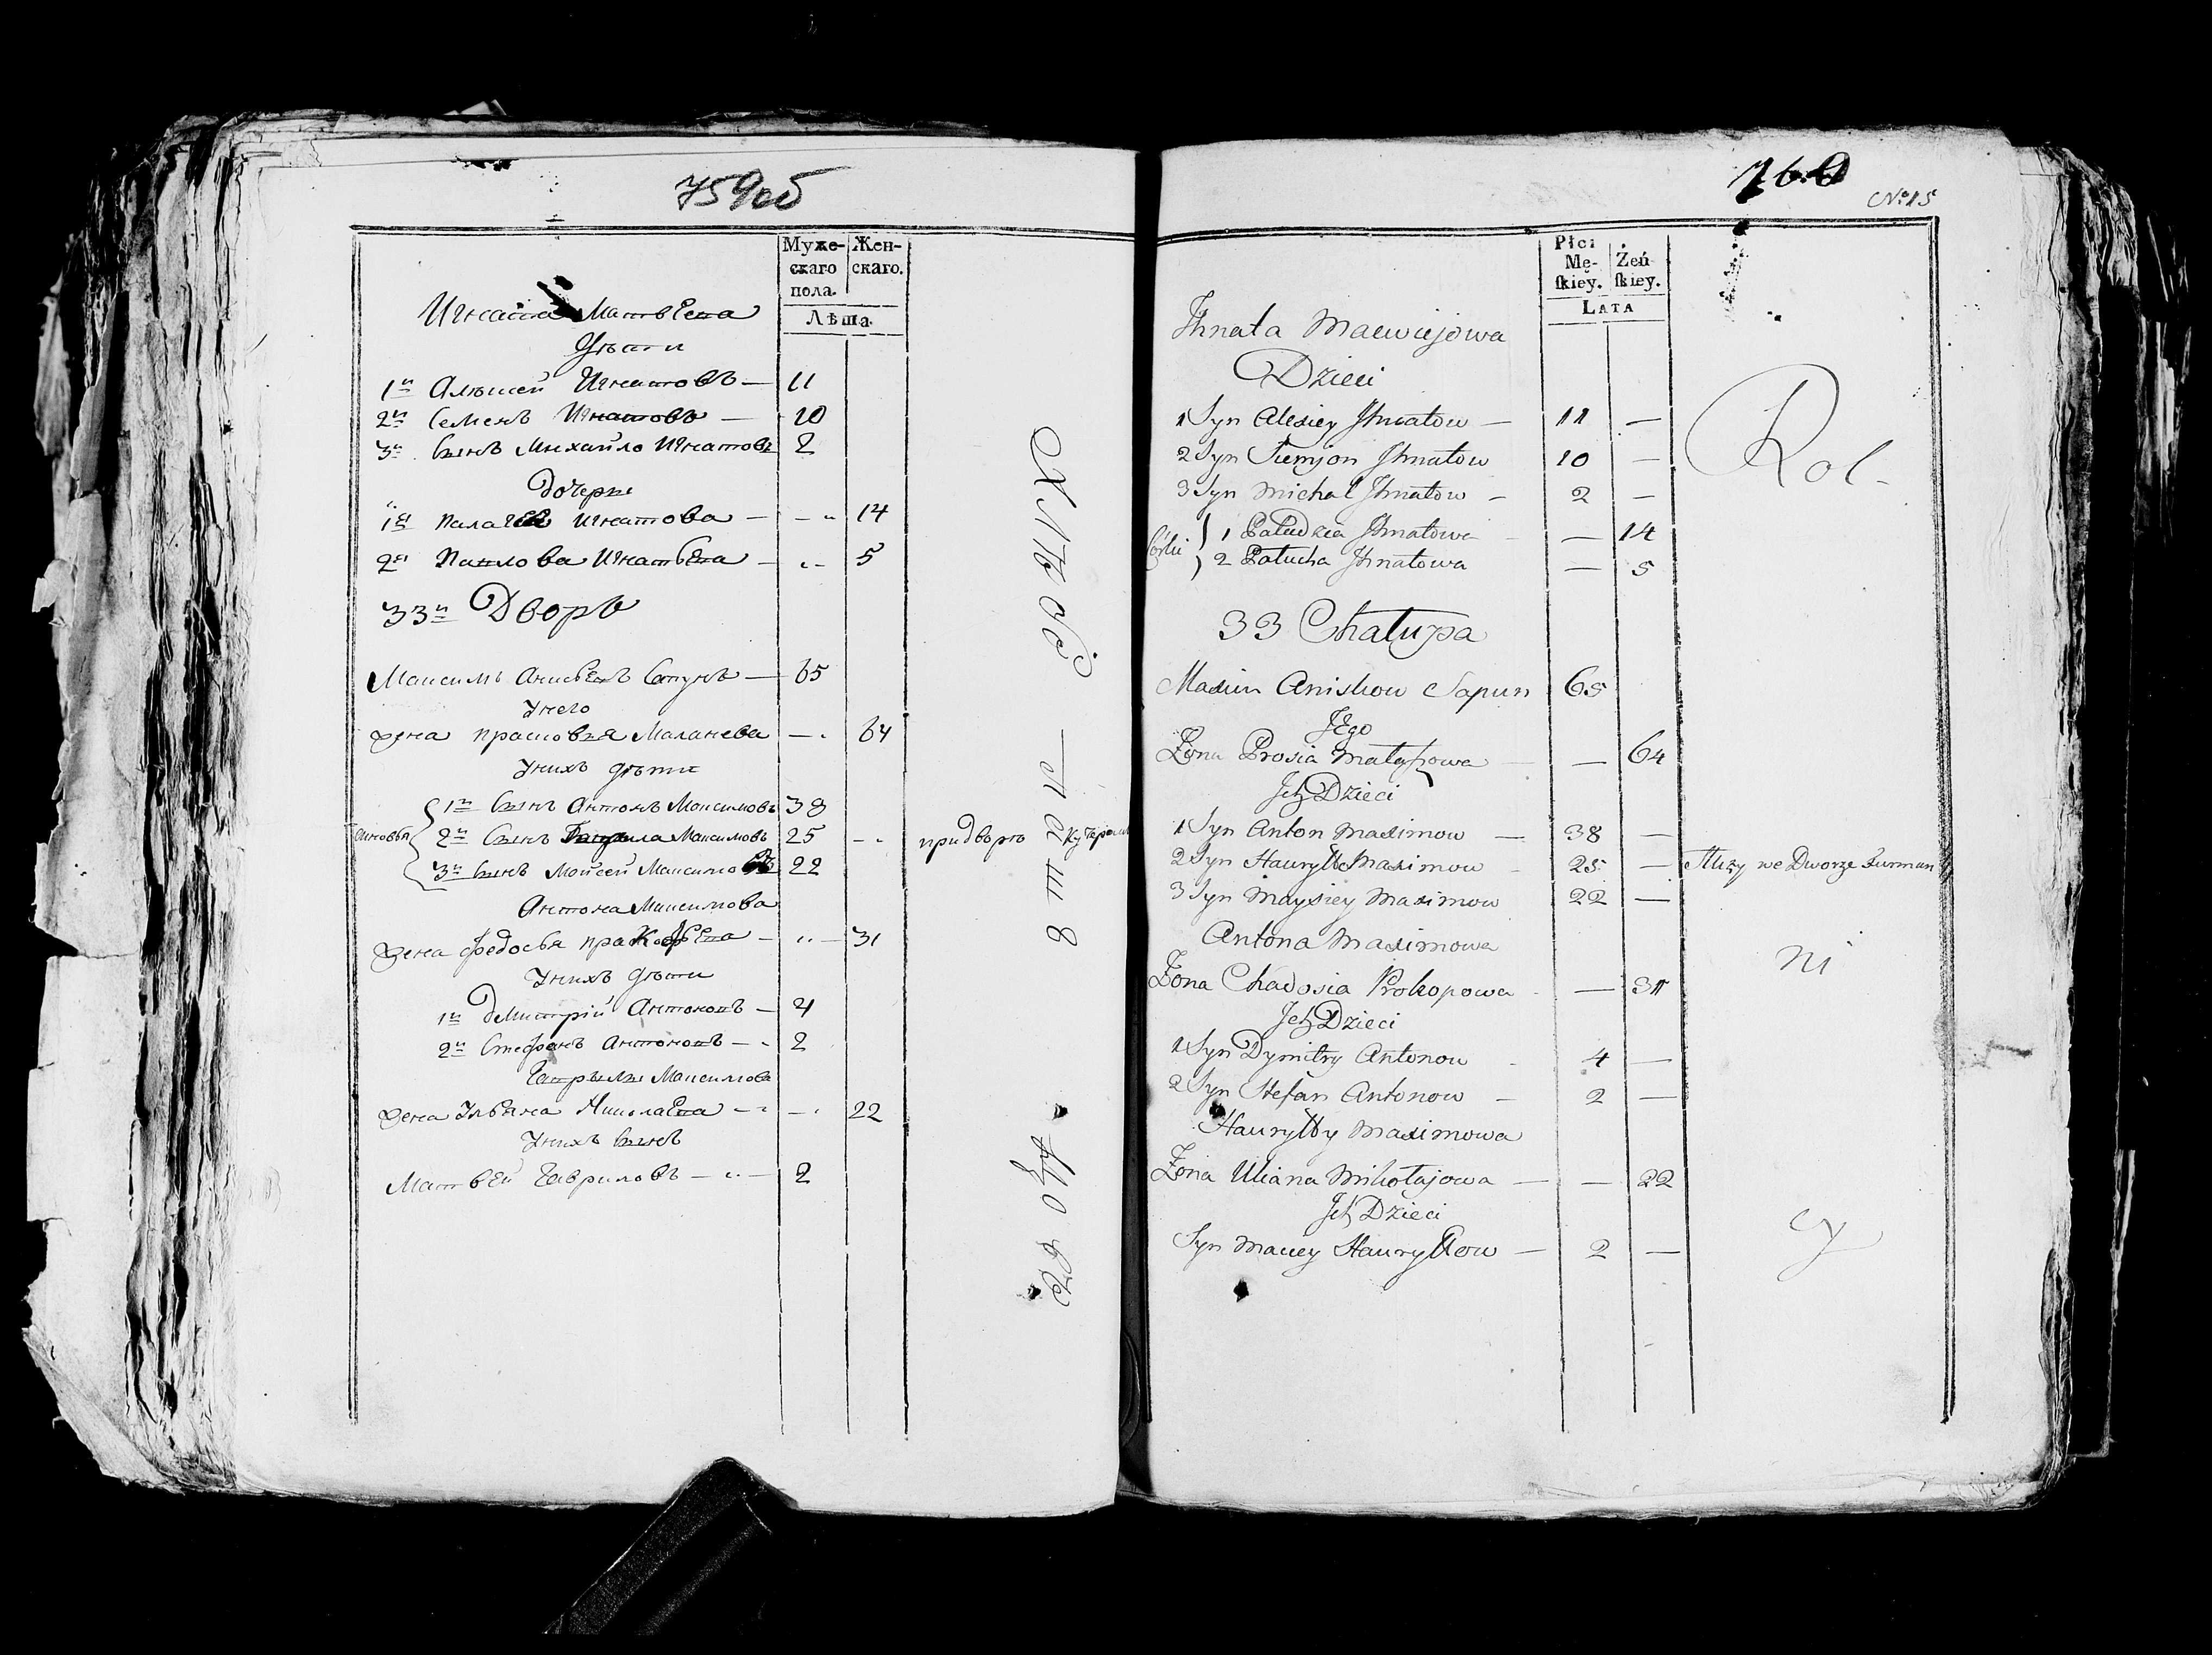 759об
Муже-
скаго
пола.
Жен-
скаго.
Лѣта.
Игната Матвѣева
Дѣти
1й Алексей Игнатовъ — 11
2й Семенъ Игнатовъ — 10
3й Сынъ Михайло Игнатовъ 2
дочери
1я Палагея Игнатова — 14
2я Павлова Игнатьева — 5
33й Дворъ
Максимъ Анисковъ Сапунъ — 65
Унего
жена прасковья Маланева — 64
Унихъ дѣти
1й Сынъ Антонъ Максимовъ 38
2й Сынъ Гаврила Максимовъ 25 придворѣ
3й Сынъ Мойсей Максимовъ 22
Антона Максимова
жена федосья Прокофьева — 31
Унихъ дѣти
1й Дмитрій Антоновъ — 4
2й Стефанъ Антоновъ — 2
Гаврилы Максимова
жена Ульяна Николаева — 22
Унихъ Сынъ
Матвей Гавриловъ — 2
760
№ 15
Płci
Mę-
ſkiey.
Żeń-
ſkiey.
LATA
Ihnata Maciejowa
Dzieci
1 Syn Alexiey Ihnatow — 11 —
2 Syn Siemjon Ihnatow 10 —
3 Syn Michał Ihnatow — 2 —
Corki } 1 Paludzia Ihnatowa — 14
2 Patucha Ihnatowa — 5
33 Chałupa
Maxim Aniskow Sapun 65
Jego
Żona Prosia — 64
Ich Dzieci
1 Syn Anton Maximow — 38 —
2 Syn Hauryłło Maximow 25 — Służy we Dworze Furman
3 Syn Maysiey Maximow 22 —
Antona Maximowa
Żona Chadosia Prokopowa — 31
Ich Dzieci
1 Syn Dymitry Antonow 4 —
2 Syn Stefan Antonow — 2 —
Hauryłły Maximowa
Żona Uliana Mikołajowa — 22
Ich Dzieci
Syn Maciey Hauryłłow — 2 —
Rol-
ni
cy